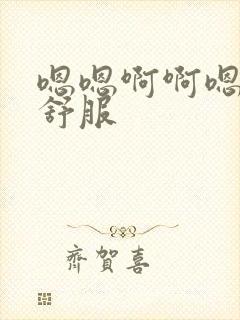 嗯嗯啊啊嗯
舒服
齊賀喜